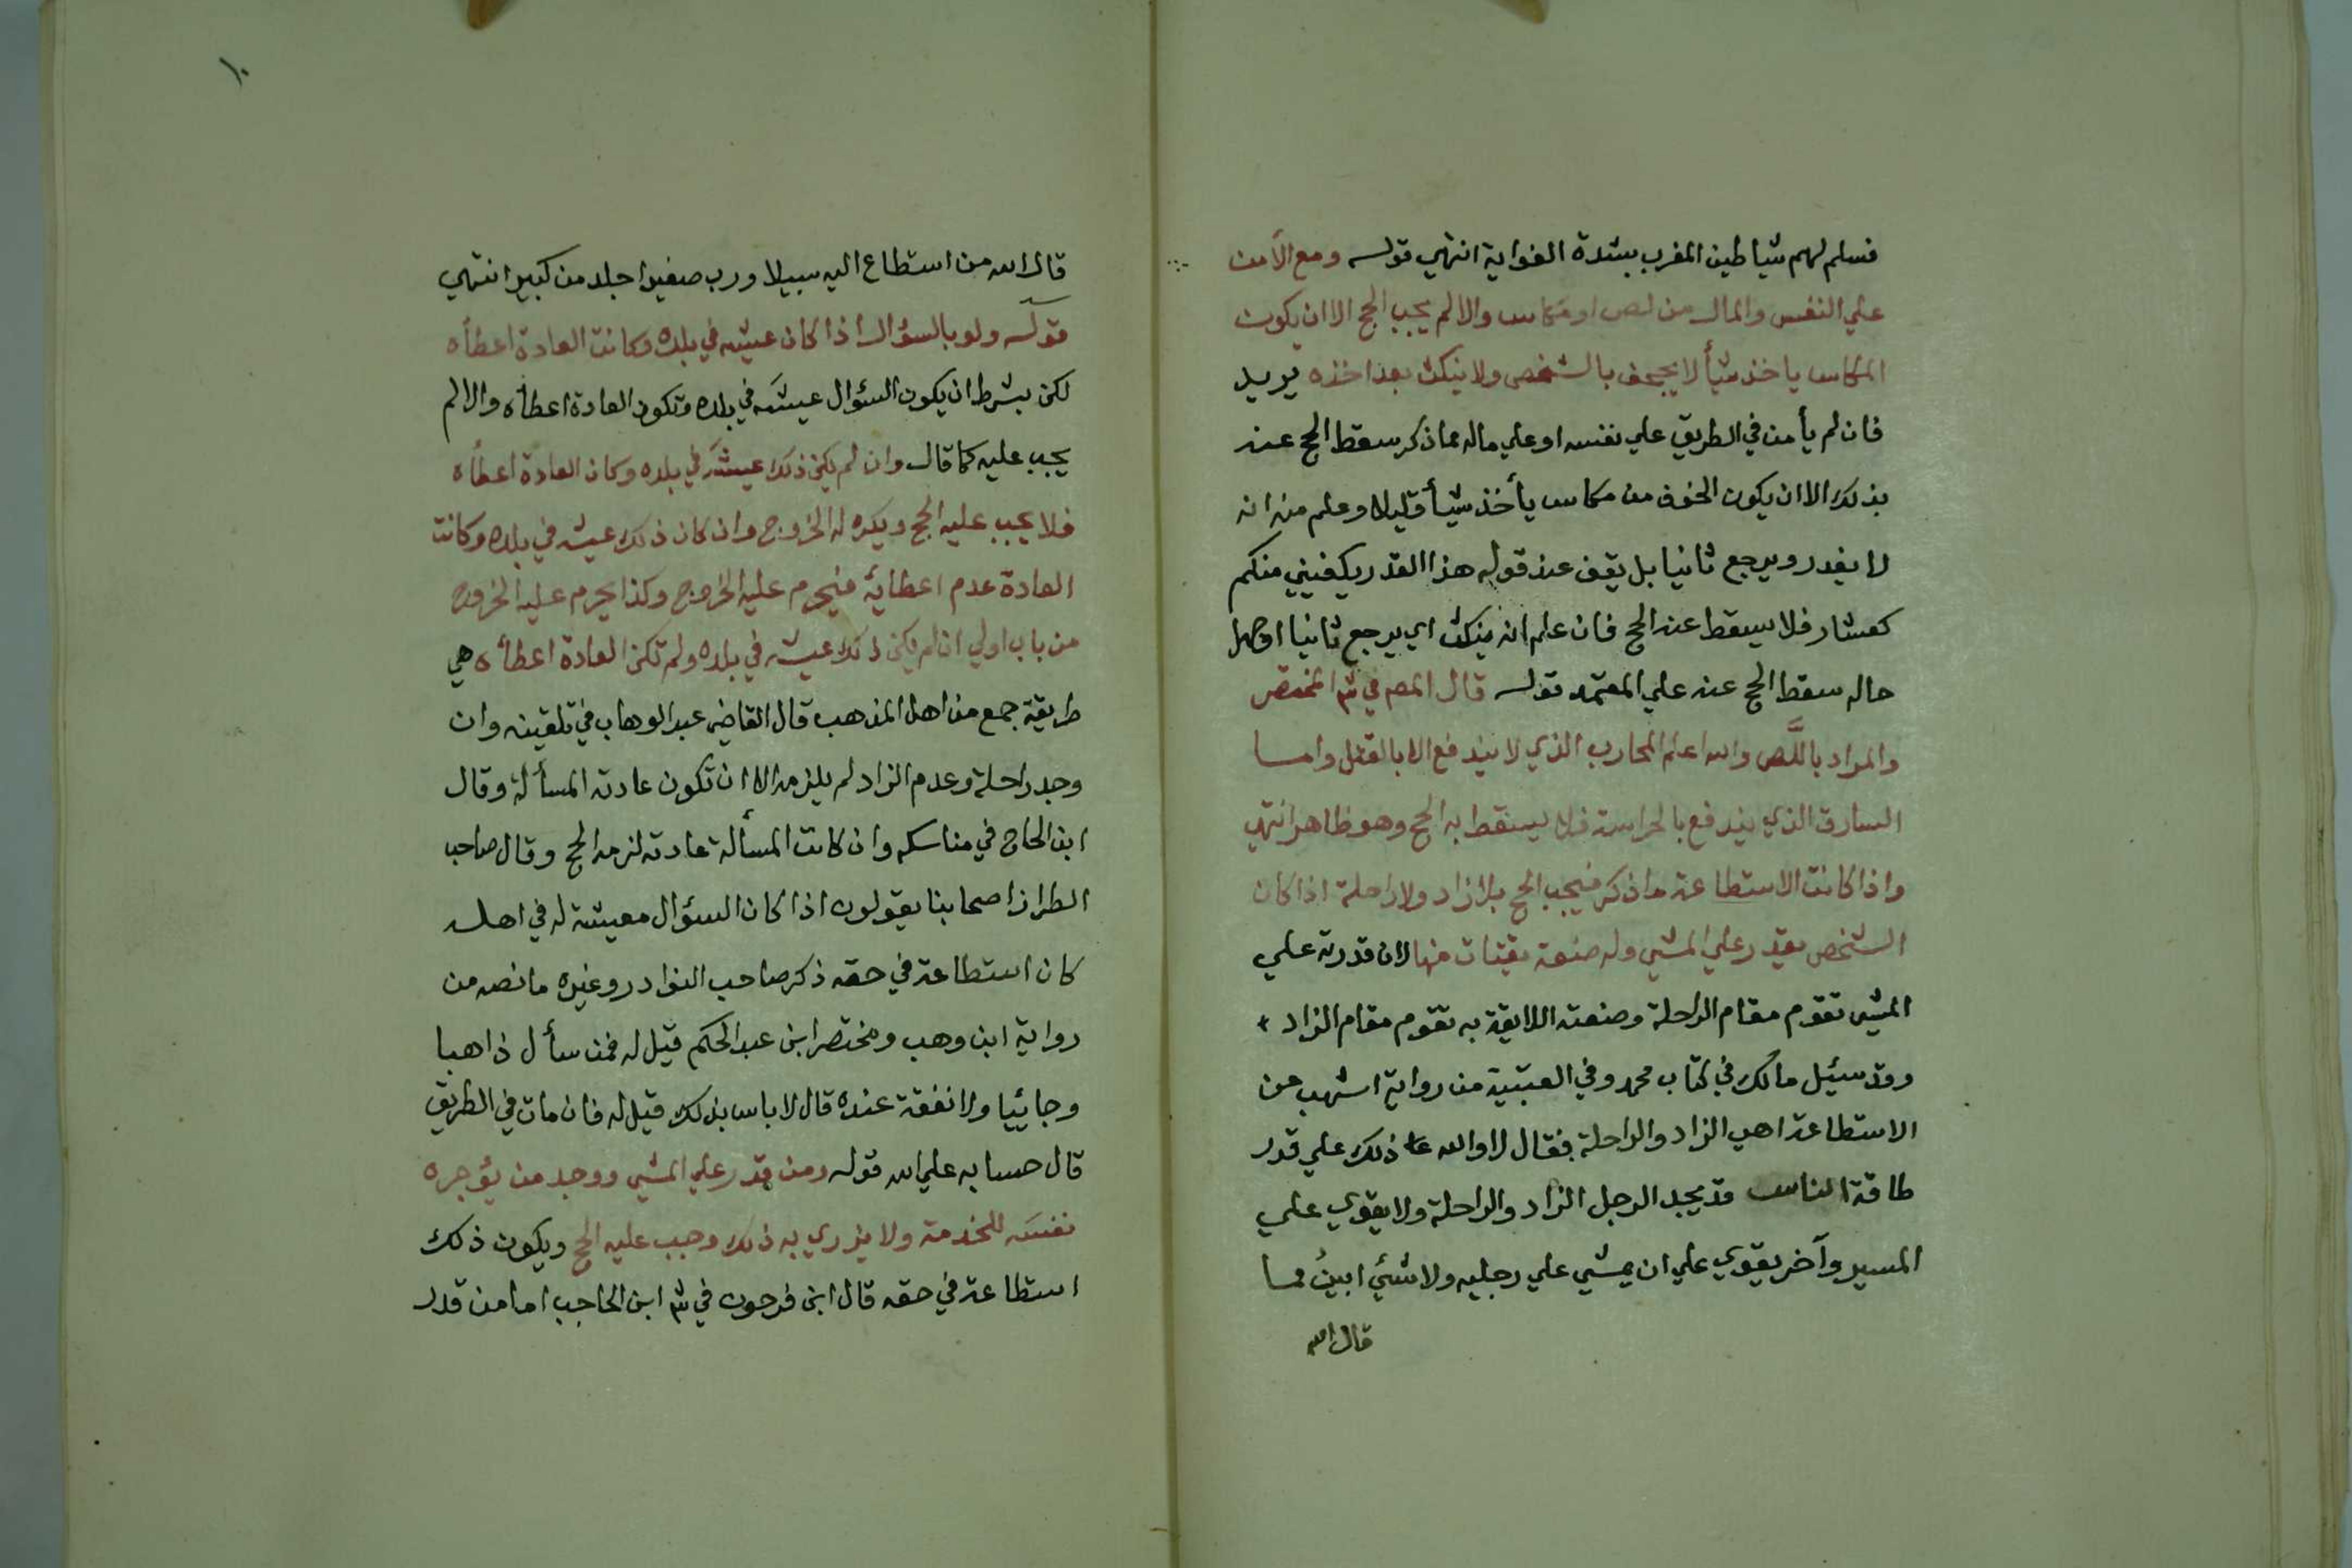 فسلم لهم شياطين المغرب بشدة الغواية انتهي قوله ومع الأمن
علي النفس والمال من لص او مكاس والا لم يجب الحج الا ان يكون
المكاس ياخذ شيأ لا يجحف بالشخص ولا ينكث بعد اخذه يريد
فان لم يأمن في الطريق علي نفسه او علي ماله مما ذكر سقط الحج عنه
بذلك الا ان يكون الخوف من مكاس يأخذ شيأ قليلا وعلم منه انه
لا يغدر ويرجع ثانيا بل يقف عند قوله هذا القدر يكفيني منكم
كعشار فلا يسقط عنه الحج فان علم انه ينكث اي يرجع ثانيا او جهل
حاله سقط الحج عنه علي المعتمد قوله قال المص في شر المختصر
والمراد باللَّص والله اعلم المحارب الذي لا يندفع الا بالقتل واما
السارق الذي يندفع بالحراسة فلا يسقط به الحج وهو ظاهر انتهي
واذا كانت الاستطاعة ما ذكر فيجب الحج بلا زاد ولا راحلة اذا كان
الشخص يقدر علي المشي وله صنعة يقتات منها لان قدرته علي
المشي تقوم مقام الراحلة وصنعته اللايقة به تقوم مقام الزاد
وقد سيئل مالك في كتاب محمد وفي العتبية من رواية اشهب عن
الاستطاعة اهي الزاد والراحلة فقال لا والله ما ذلك علي قدر
طاقة الناس قد يجد الرجل الزاد والراحلة ولا يقوي علي
المسير وآخر يقوي علي ان يمشي علي رجليه ولا شئي ابينُ مما
قال الله
١٠
قال الله من استطاع اليه سبيلا ورب صغير اجلد من كبير انتهي
قوله ولو بالسؤال اذا كان عيشه في بلده وكانت العادة اعطأه
لكن بشرط ان يكون السؤال عيشه في بلده وتكون العادة اعطأه والا لم
يجب عليه كما قال وان لم يكن ذلك عيشه في بلده وكان العادة اعطأه
فلا يجب عليه الحج ويكره له الخروج وان كان ذلك عيشه في بلده وكانت
العادة عدم اعطايه فيحرم عليه الخروج وكذا يحرم عليه الخروج
من باب اولي ان لم يكن ذلك عيشه في بلده ولم تكن العادة اعطأه هي
طريقة جمع من اهل المذهب قال القاضي عبد الوهاب في تلقينه وان
وجد راحلة وعدم الزاد لم يلزمه الا ان تكون عادته المسألة وقال
ابن الحاج في مناسكه وان كانت المسألة عادته لزمه الحج وقال صاحب
الطراز اصحابنا يقولون اذا كان السؤال معيشة له في اهله
كان استطاعة في حقه ذكر صاحب النوادر وغيره ما نصه من
رواية ابن وهب ومختصر ابن عبد الحكم قيل له فمن سأل ذاهبا
وجاييا ولا نفقة عنده قال لا باس بذلك قيل له فان مات في الطريق
قال حسابه علي الله قوله ومن قدر علي المشي ووجد من يؤجره
نفسه للخدمة ولا يزري به ذلك وجب عليه الحج ويكون ذلك
استطاعة في حقه قال ابن فرحون في شر ابن الحاجب اما من قدر